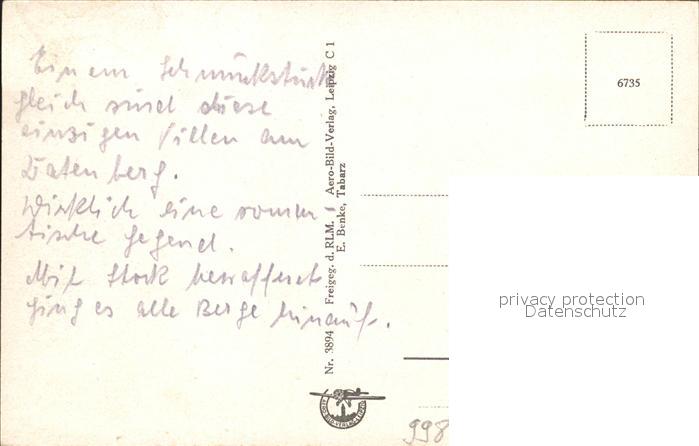 Einem Schmuckstück
gleich sind diese
einzigen Villen am
Datenberg.
Wirklich eine roman-
tische Gegend.
Mit Stock bewaffnet
ging es alle Berge hinauf.
Nr. 3894 Freigeg. d. RLM. - Aero-Bild-Verlag, Leipzig C 1
E. Benke, Tabarz
6735
privacy protection
Datenschutz
AERO-BILD-VERLAG LEIPZIG
998